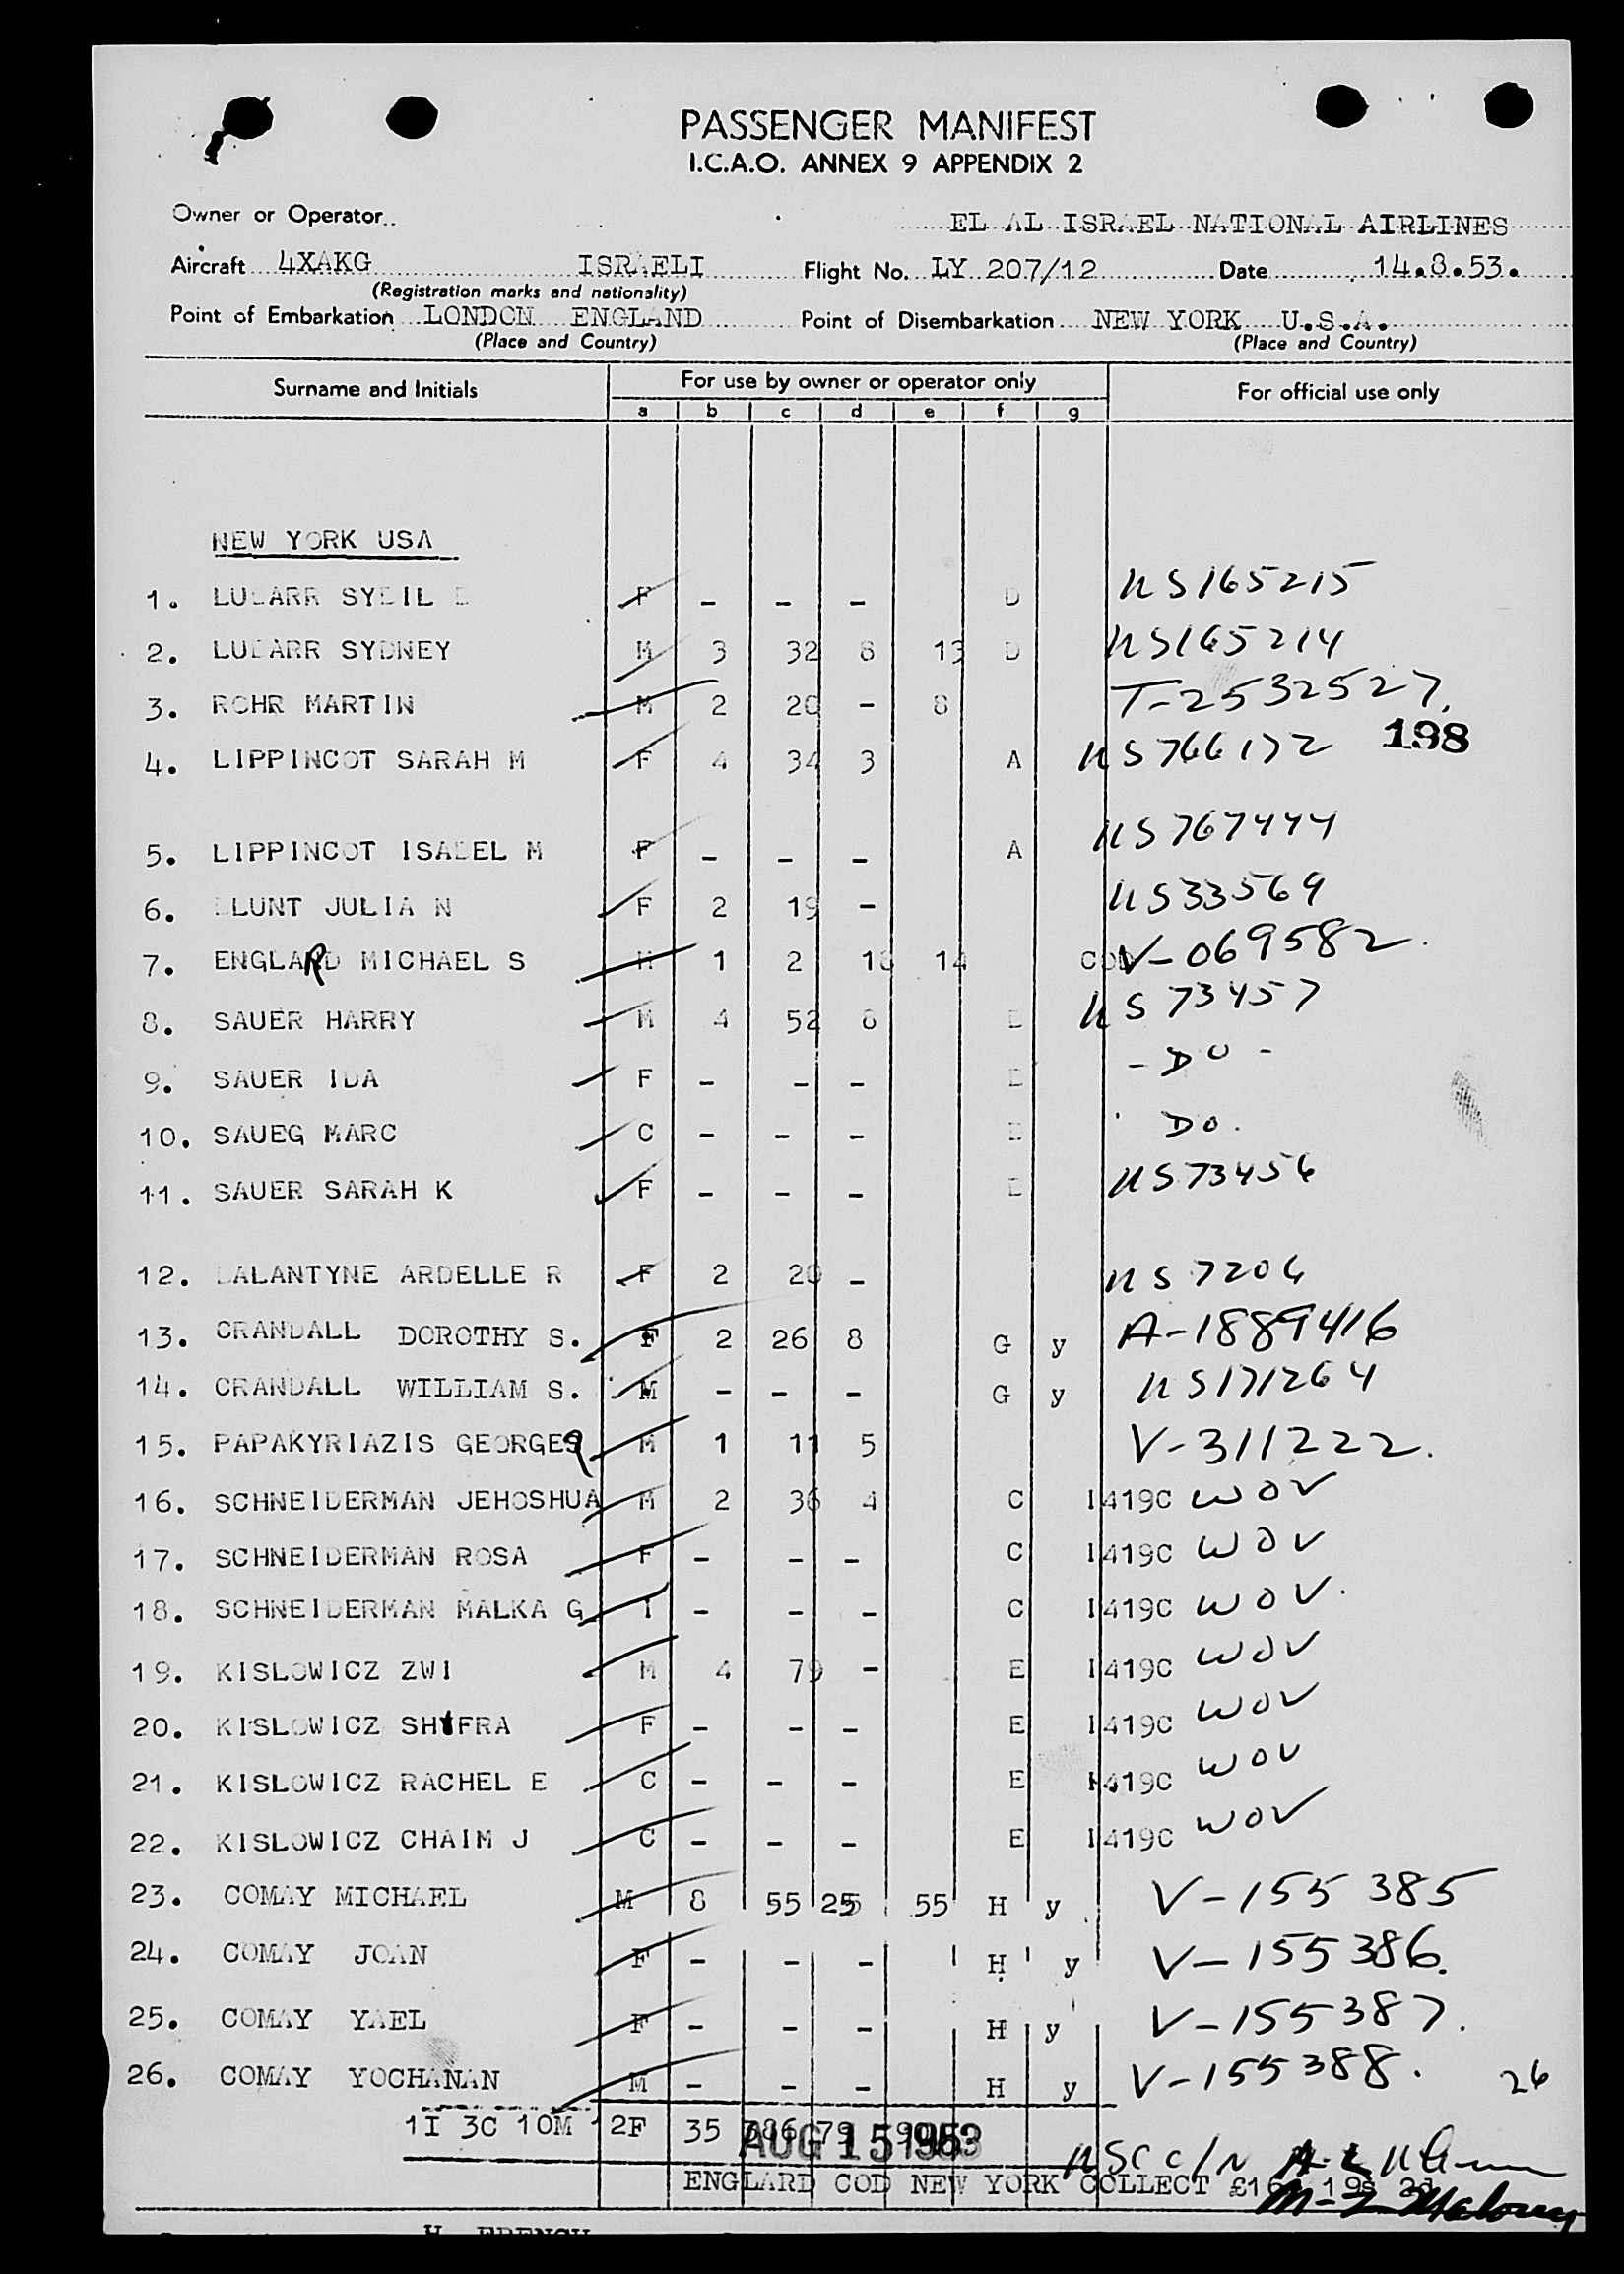 PASSENGER MANIFEST
I.C.A.O. ANNEX 9 APPENDIX 2
Owner or Operator EL AL ISRAEL NATIONAL AIRLINES
Aircraft 4XAKG ISRAELI Flight No. LY 207/12 Date 14.8.53.
(Registration marks and nationality)
Point of Embarkation LONDON ENGLAND Point of Disembarkation NEW YORK U.S.A.
(Place and Country) (Place and Country)
Surname and Initials For use by owner or operator only For official use only
a b c d e f g
NEW YORK USA
1. SYBIL F - - - D US165215
2. SYDNEY M 3 32 8 13 D US165214
3. ROHR MARTIN M 2 20 - 8 T-2532527.
4. LIPPINCOT SARAH M F 4 34 3 A US766172 198
5. LIPPINCOT ISABEL M F - - - A US767444
6. BLUNT JULIA N F 2 19 - US33569
7. ENGLARD MICHAEL S M 1 2 14 COD V-069582.
8. SAUER HARRY M 4 52 8 US73457
9. SAUER IDA F - - - - DO -
10. SAUEG MARC C - - - DO.
11. SAUER SARAH K F - - - US73456
12. BALANTYNE ARDELLE R F 2 20 - US7206
13. CRANDALL DOROTHY S. F 2 26 8 G y A-1889416
14. CRANDALL WILLIAM S. M - - - G y US171264
15. PAPAKYRIAZIS GEORGE M 1 11 5 V-311222.
16. SCHNEIDERMAN JEHOSHUA M 2 36 4 C I419C WOV
17. SCHNEIDERMAN ROSA F - - - C I419C WOV
18. SCHNEIDERMAN MALKA G I - - - C I419C WOV.
19. KISLOWICZ ZWI M 4 79 - E I419C WOV
20. KISLOWICZ SHIFRA F - - - E I419C WOV
21. KISLOWICZ RACHEL E C - - - E I419C WOV
22. KISLOWICZ CHAIM J C - - - E I419C WOV
23. COMAY MICHAEL M 8 55 25 55 H y V-155385
24. COMAY JOAN F - - - H y V-155386.
25. COMAY YAEL F - - - H y V-155387.
26. COMAY YOCHANAN M - - - H y V-155388. 26
1I 3C 10M 12F 35 79
AUG 15 1953
ENGLARD COD NEW YORK COLLECT
H. FRENCH